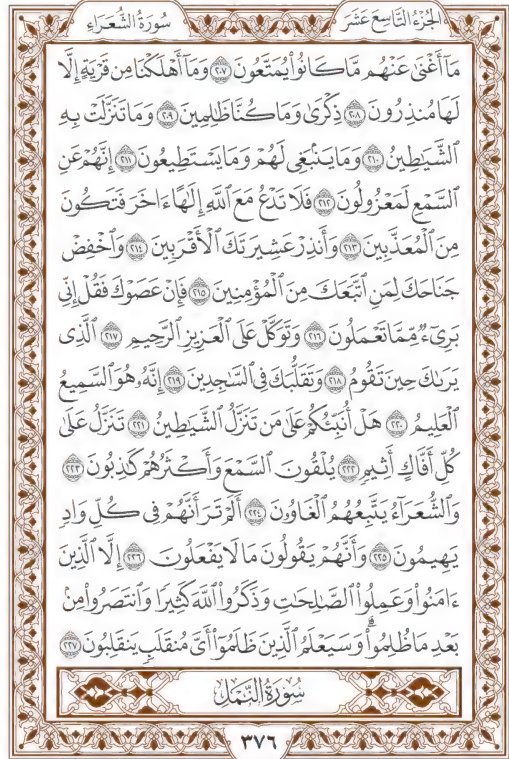 الجُزْءُ التَّاسِعَ عَشَرَ
سُورَةُ الشُّعَرَاءِ
مَآ أَغْنَىٰ عَنْهُم مَّا كَانُوا۟ يُمَتَّعُونَ ٢٠٧ وَمَآ أَهْلَكْنَا مِن قَرْيَةٍ إِلَّا
لَهَا مُنذِرُونَ ٢٠٨ ذِكْرَىٰ وَمَا كُنَّا ظَٰلِمِينَ ٢٠٩ وَمَا تَنَزَّلَتْ بِهِ
ٱلشَّيَٰطِينُ ٢١٠ وَمَا يَنۢبَغِى لَهُمْ وَمَا يَسْتَطِيعُونَ ٢١١ إِنَّهُمْ عَنِ
ٱلسَّمْعِ لَمَعْزُولُونَ ٢١٢ فَلَا تَدْعُ مَعَ ٱللَّهِ إِلَٰهًا ءَاخَرَ فَتَكُونَ
مِنَ ٱلْمُعَذَّبِينَ ٢١٣ وَأَنذِرْ عَشِيرَتَكَ ٱلْأَقْرَبِينَ ٢١٤ وَٱخْفِضْ
جَنَاحَكَ لِمَنِ ٱتَّبَعَكَ مِنَ ٱلْمُؤْمِنِينَ ٢١٥ فَإِنْ عَصَوْكَ فَقُلْ إِنِّى
بَرِىٓءٌ مِّمَّا تَعْمَلُونَ ٢١٦ وَتَوَكَّلْ عَلَى ٱلْعَزِيزِ ٱلرَّحِيمِ ٢١٧ ٱلَّذِى
يَرَىٰكَ حِينَ تَقُومُ ٢١٨ وَتَقَلُّبَكَ فِى ٱلسَّٰجِدِينَ ٢١٩ إِنَّهُۥ هُوَ ٱلسَّمِيعُ
ٱلْعَلِيمُ ٢٢٠ هَلْ أُنَبِّئُكُمْ عَلَىٰ مَن تَنَزَّلُ ٱلشَّيَٰطِينُ ٢٢١ تَنَزَّلُ عَلَىٰ
كُلِّ أَفَّاكٍ أَثِيمٍ ٢٢٢ يُلْقُونَ ٱلسَّمْعَ وَأَكْثَرُهُمْ كَٰذِبُونَ ٢٢٣
وَٱلشُّعَرَآءُ يَتَّبِعُهُمُ ٱلْغَاوُۥنَ ٢٢٤ أَلَمْ تَرَ أَنَّهُمْ فِى كُلِّ وَادٍ
يَهِيمُونَ ٢٢٥ وَأَنَّهُمْ يَقُولُونَ مَا لَا يَفْعَلُونَ ٢٢٦ إِلَّا ٱلَّذِينَ
ءَامَنُوا۟ وَعَمِلُوا۟ ٱلصَّٰلِحَٰتِ وَذَكَرُوا۟ ٱللَّهَ كَثِيرًا وَٱنتَصَرُوا۟ مِنۢ
بَعْدِ مَا ظُلِمُوا۟ ۗ وَسَيَعْلَمُ ٱلَّذِينَ ظَلَمُوٓا۟ أَىَّ مُنقَلَبٍ يَنقَلِبُونَ ٢٢٧
سُورَةُ النَّمْلِ
٣٧٦